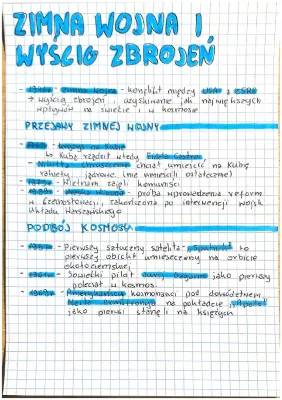 ZIMNA WOJNA I
WYŚCIG ZBROJEŃ
zimna wojna - konflikt między USA a ZSRR
→ wyścig zbrojeń, uzyskiwanie jak największych
wpływów na świecie i w kosmosie
PRZEJAWY ZIMNEJ WOJNY
- wojny na Kubie
↳ Kubą rządził wtedy Fidel Castro
- Nikita Chruszczow chciał umieścić na Kubie
rakiety jądrowe (nie umieścili ostatecznie)
- Wietnam zajęli komuniści
- próba wprowadzenia reform
w Czechosłowacji, zakończona po interwencji wojsk
Układu Warszawskiego
PODBÓJ KOSMOSU
- Pierwszy sztuczny satelita - "Sputnik" to
pierwszy obiekt umieszczony na orbicie
okołoziemskiej
- 1961r. - Sowiecki pilot Jurij Gagarin jako pierwszy
poleciał w kosmos.
- 1969r. - Amerykańscy kosmonauci pod dowództwem
Neila Armstronga na pokładzie "Apollo"
jako pierwsi stanęli na księżycu.